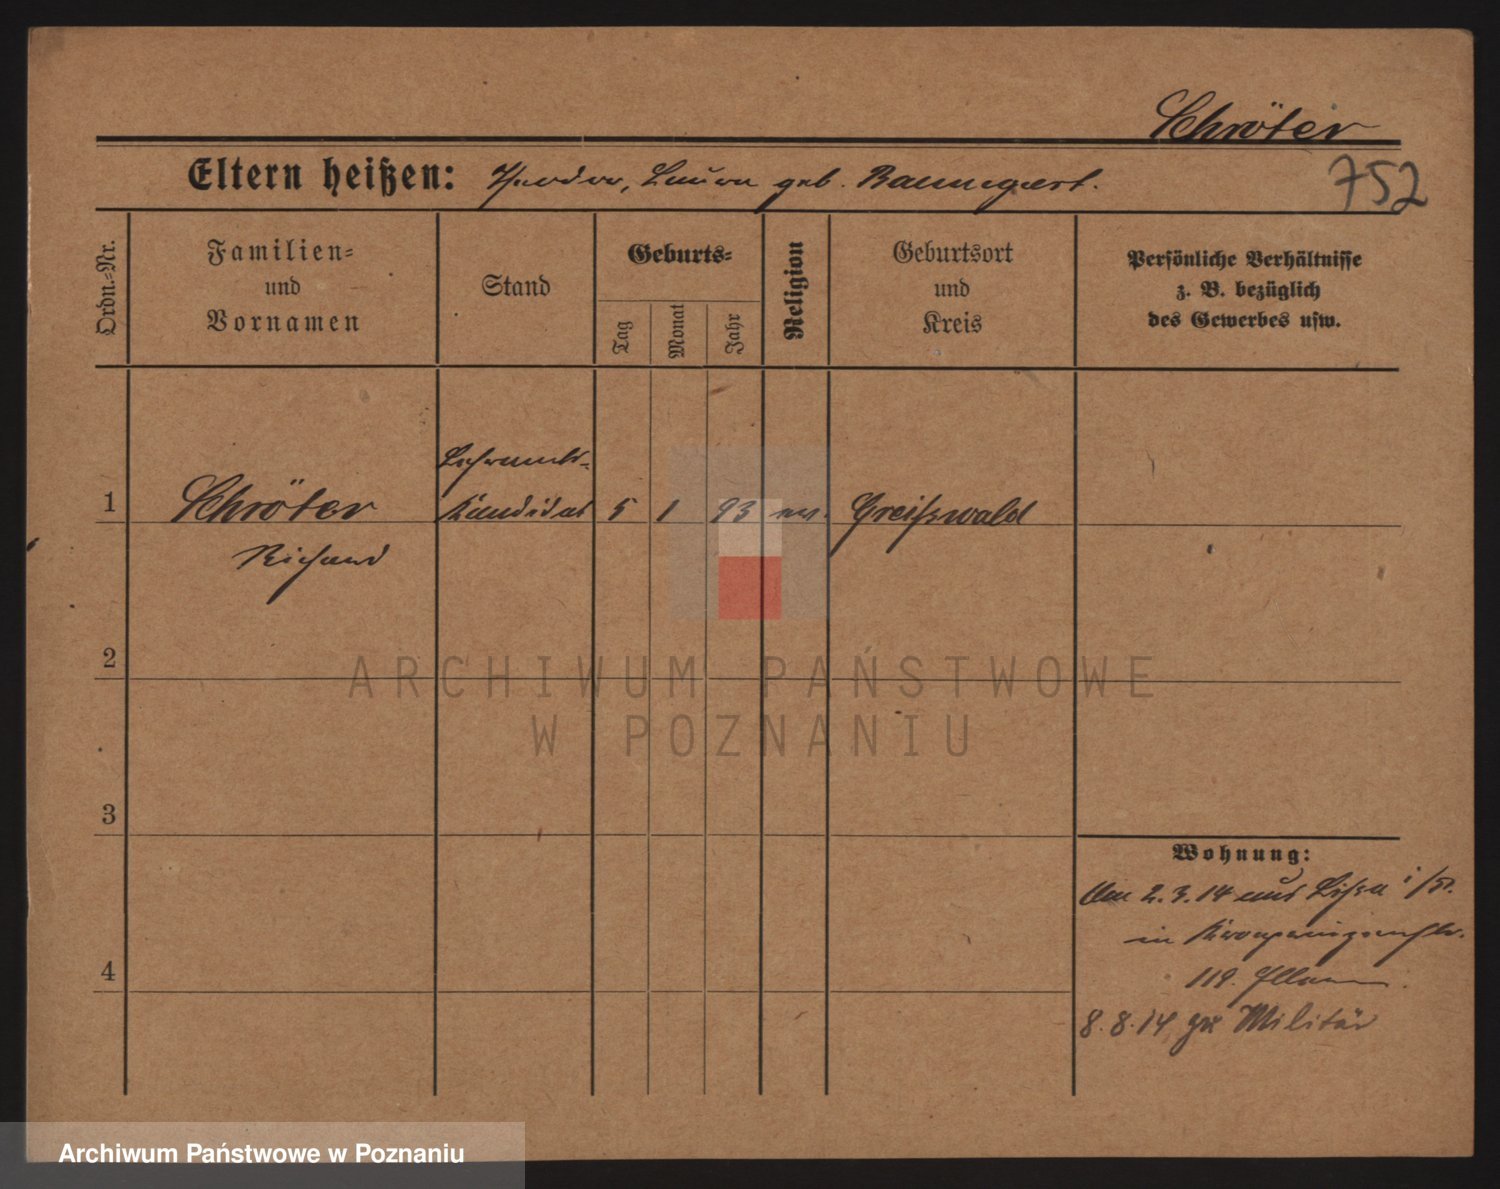 Schröter
752
Eltern heißen: Theodor, Laura geb. Baumgart.
Ordn.-Nr.
Familien-
und
Vornamen
Stand
Geburts-
Tag
Monat
Jahr
Religion
Geburtsort
und
Kreis
Persönliche Verhältnisse
z. B. bezüglich
des Gewerbes usw.
Lehramts-
1 Schröter Kandidat 5 1 93 ev. Greifswald
Richard
2
ARCHIWUM PAŃSTWOWE
W POZNANIU
3
Wohnung:
Am 2.3.14 aus Lissa i/P.
in Kronprinzenstr.
4
119.
8.8.14 zu Militär
Archiwum Państwowe w Poznaniu